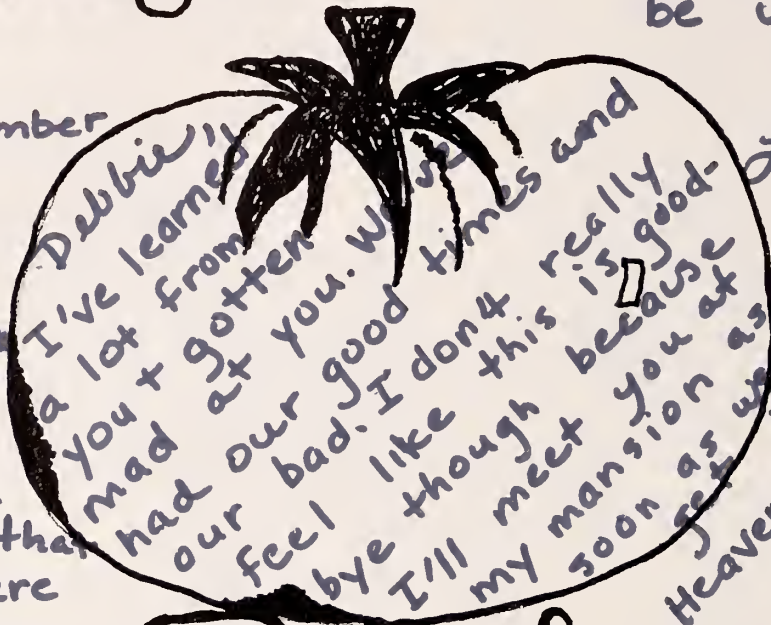 be
mber
Debbie,
I've learned
a lot from
you + gotten
mad at you. We've
had our good times and
our bad. I don't really
feel like this is good-
bye though because
I'll meet you at
my mansion as
soon as we
get
Heaven
that
ere